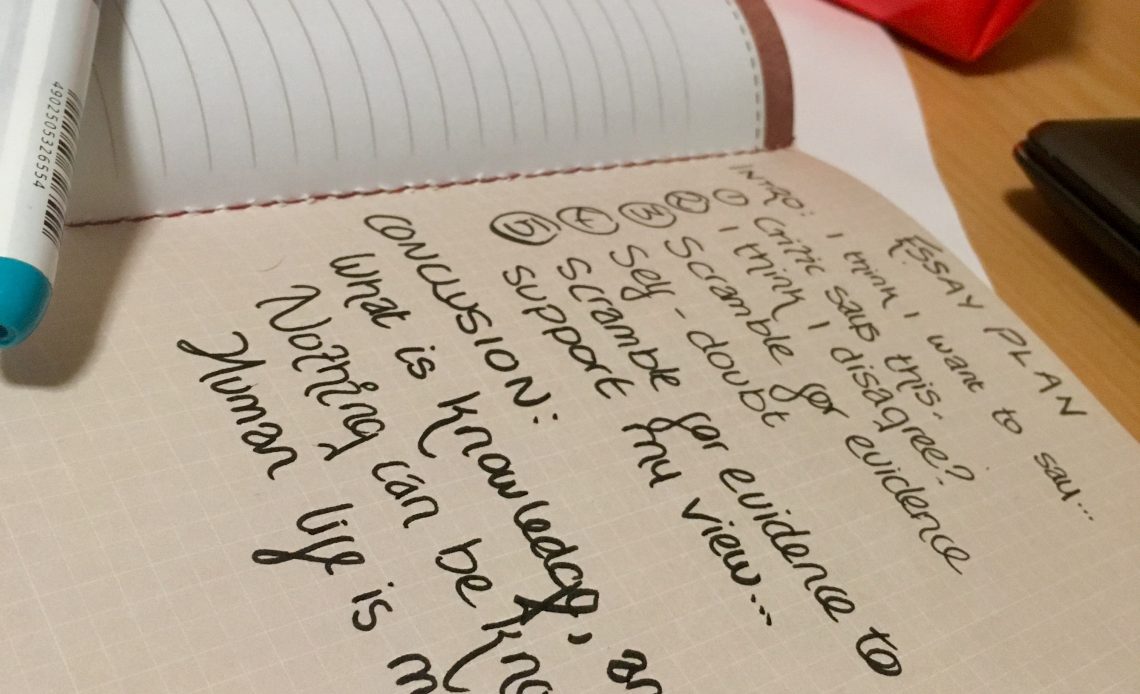 ESSAY PLAN
INTRO: I think I want to say...
① Critic says this.
② I think I disagree?
③ Scramble for evidence
④ Self-doubt
⑤ Scramble for evidence to
support my view...
CONCLUSION:
What is knowledge,
Nothing can be
Human life is
4902505326554